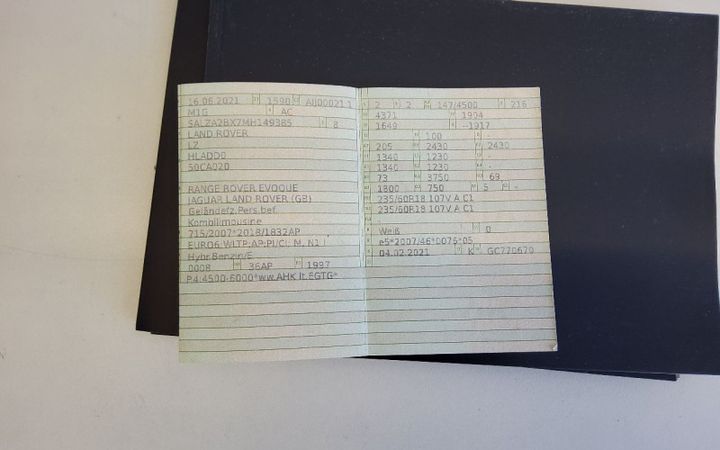 16.06.2021 1590 AIJ00021 1
M1G AC
SALZA2BX7MH149385 8
LAND ROVER
LZ
HLADD0
50CA020
RANGE ROVER EVOQUE
JAGUAR LAND ROVER (GB)
Geländefz.Pers.bef.
Kombilimousine
715/2007*2018/1832AP
EURO6 WLTP;AP:PI/CI; M, N1 I
Hybr.Benzin/E
0008 36AP 1997
P.4:4500-6000*ww.AHK lt.EGTG*
2 2 147/4500 216
4371 1904
1649 --1917
100 -
205 2430 2430
1340 1230 -
1340 1230 -
73 3750 69
1800 750 5 -
235/60R18 107V A C1
235/60R18 107V A C1
-
Weiß 0
e5*2007/46*0076*05
04.02.2021 K GC770670